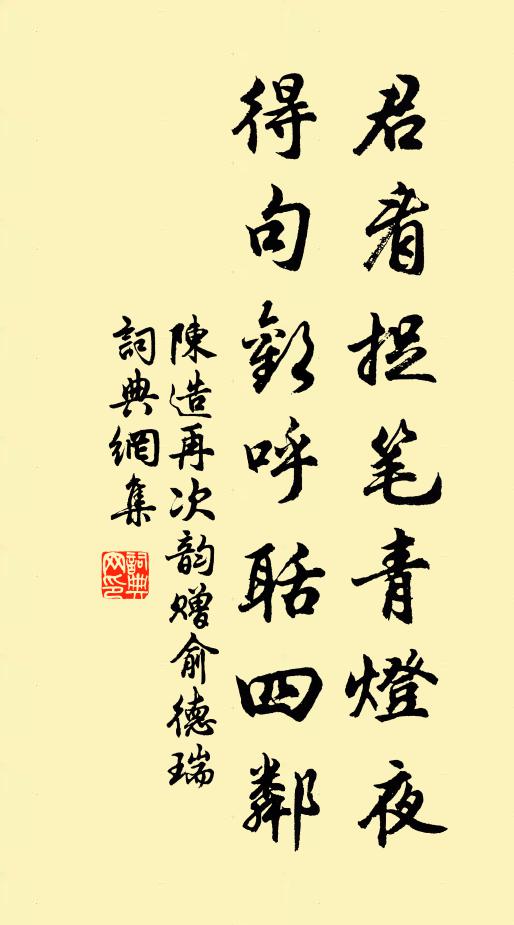 君看捉笔青燈夜
得句歡呼聒四鄰
陳造再次韵贈俞德瑞
詞典網集
詞典
网印